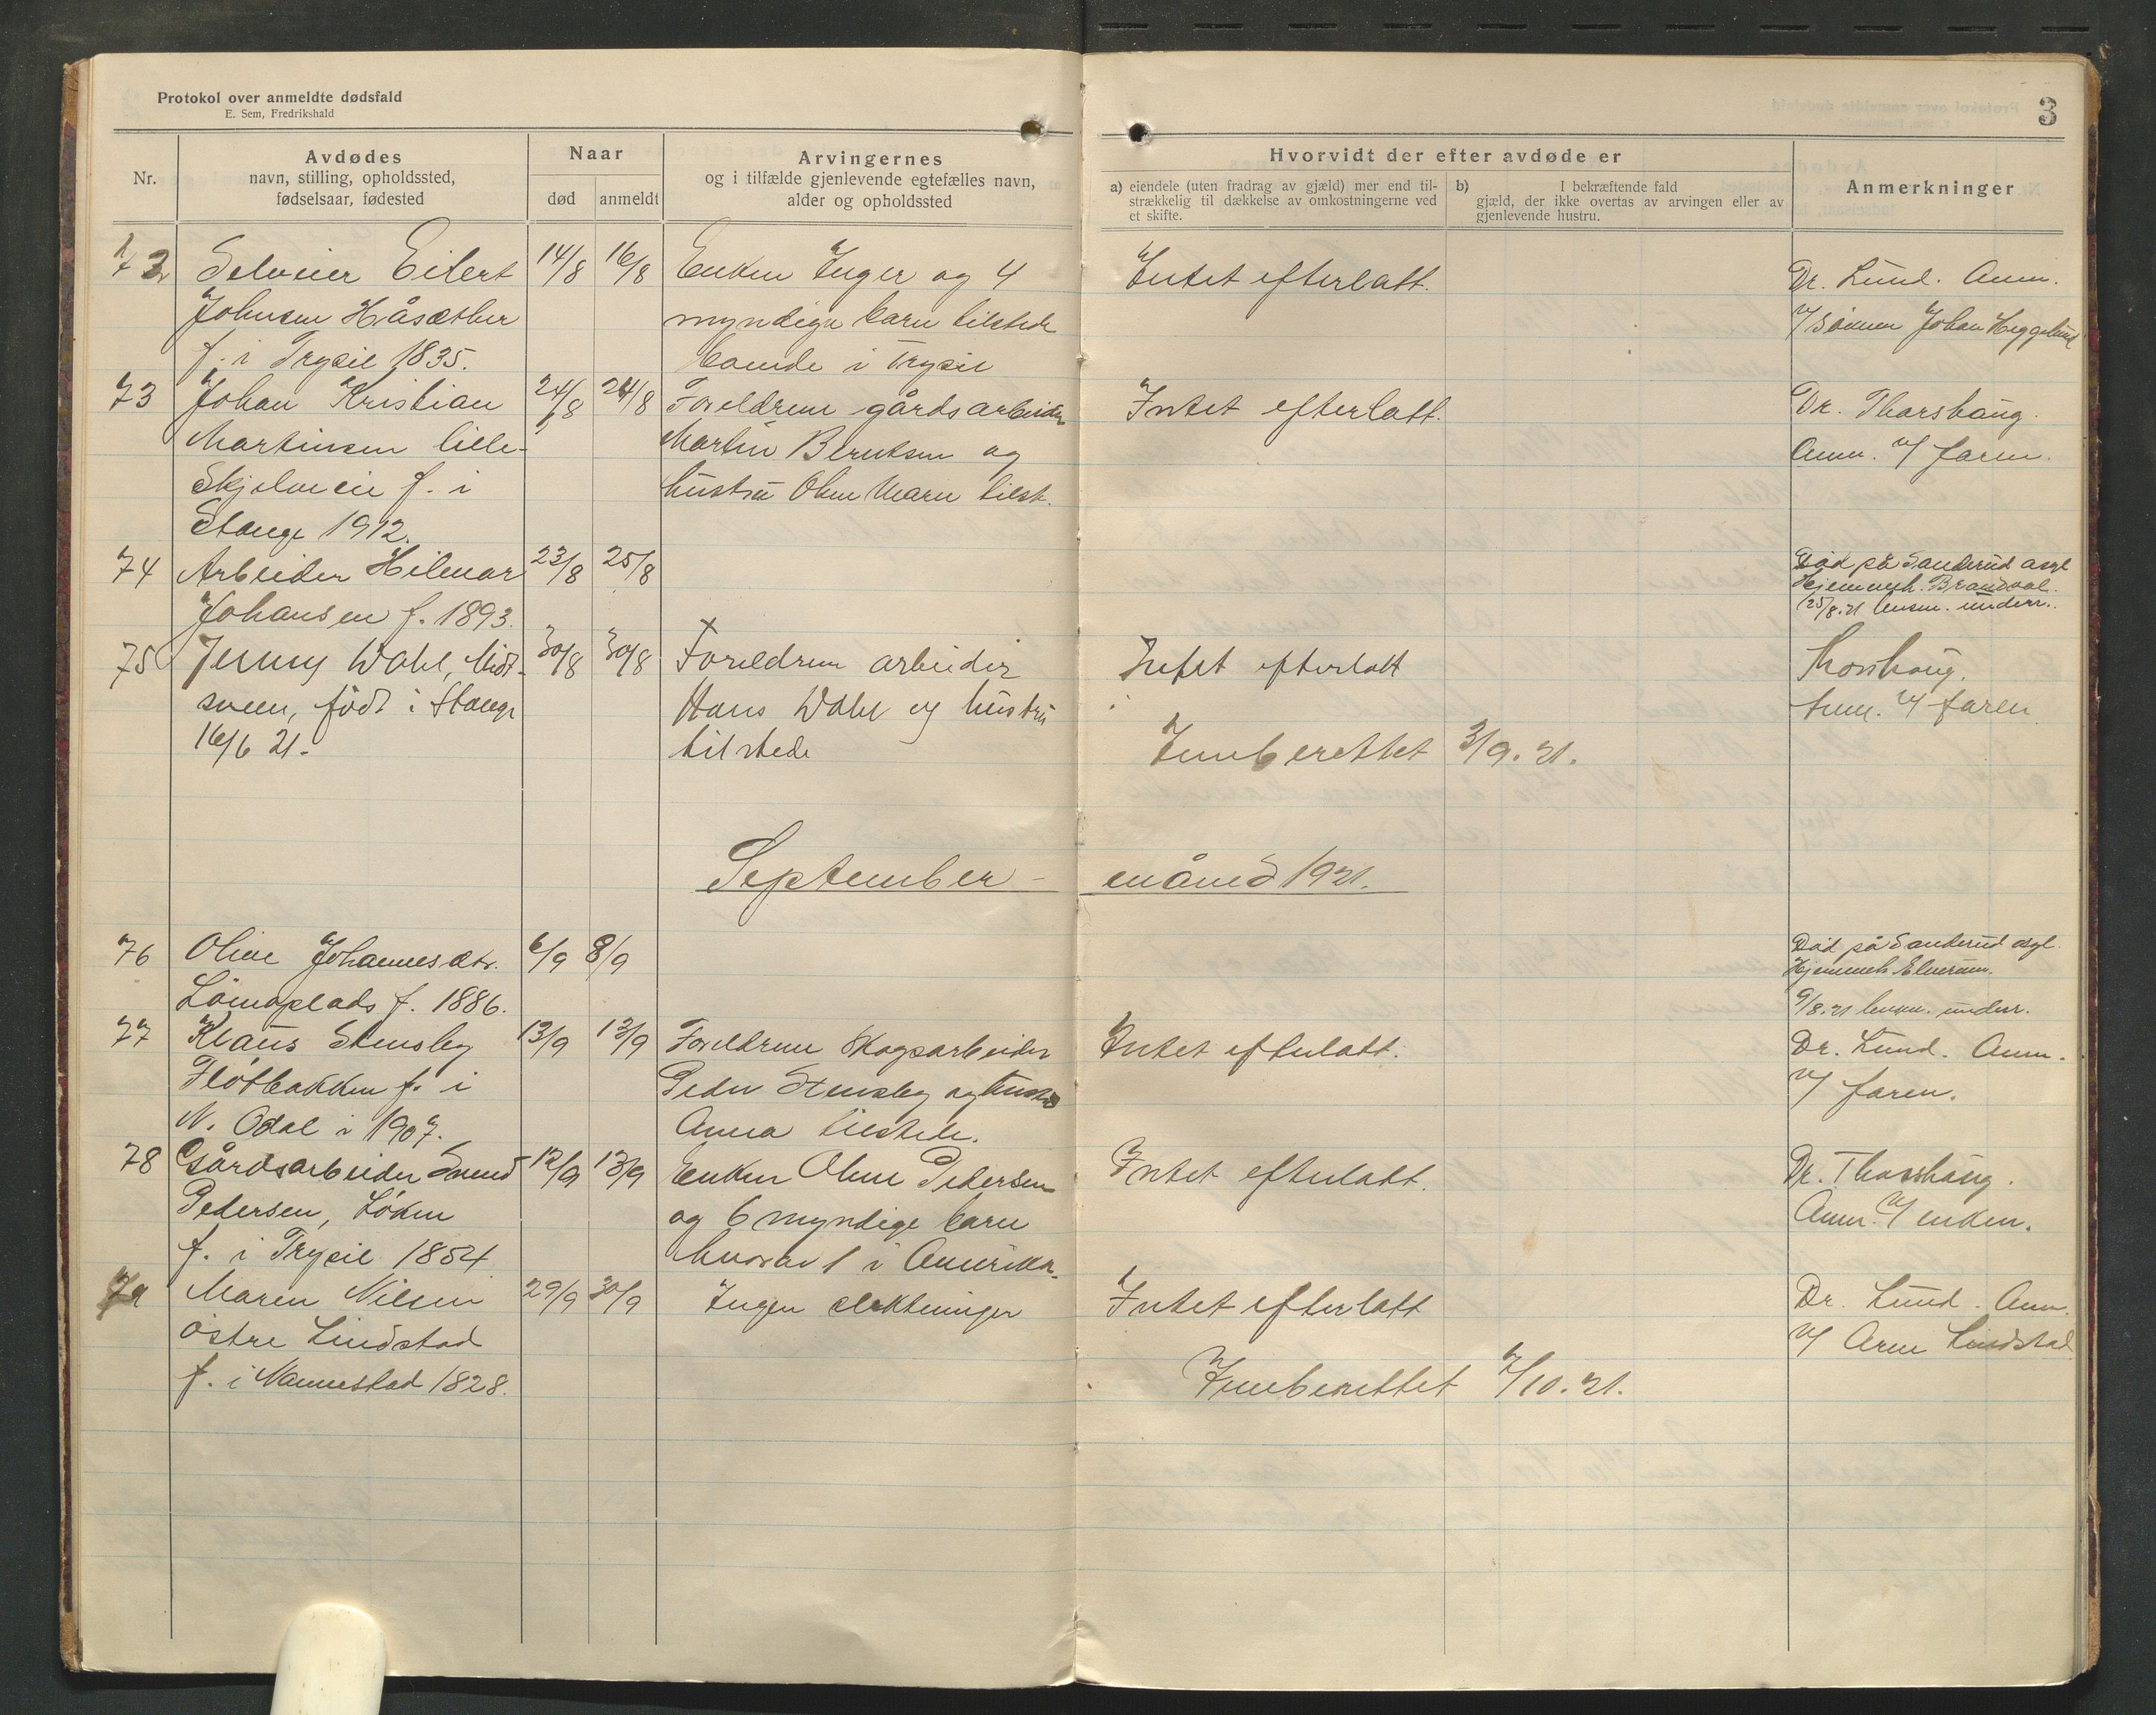 Protokol over anmeldte dødsfald
E. Sem, Fredrikshald
3
Nr.
Avdødes
navn, stilling, opholdssted,
fødselsaar, fødested
Naar
død
anmeldt
Arvingernes
og i tilfælde gjenlevende egtefælles navn,
alder og opholdssted
Hvorvidt der efter avdøde er
a) eiendele (uten fradrag av gjæld) mer end til-
strækkelig til dækkelse av omkostningerne ved
et skifte.
b) I bekræftende fald
gjæld, der ikke overtas av arvingen eller av
gjenlevende hustru.
Anmerkninger
72 Selveier Eilert 14/8 16/8 Enken Inger og 4 Intet efterlatt. Dr. Lund. Anm.
Johnsen Håsæther myndige barn tilstede v/ sönnen Johan Heggelund
f. i Trysil 1835. boende i Trysil
73 Johan Kristian 24/8 24/8 Foreldrene gårdsarbeider Intet efterlatt. Dr. Thorshaug.
Martinsen lille- Martin Berntsen og Anm. v/ faren.
Skjelveien f. i hustru Oline Marie tilst.
Stange 1912.
74 Arbeider Hilmar 23/8 25/8 Död på Sanderud asyl
Johansen f. 1893. Hjemmeh. Brandval.
25/8.21 lensm. underr.
75 Jenny Wahl, Midt- 30/8 30/8 Foreldrene arbeider Intet efterlatt Thorshaug.
sveen, född i Stange Hans Wahl og hustru Anm. v/ faren
16/6 21. tilstede Innberettet 3/9. 21.
September- måned 1921.
76 Oline Johannesdtr. 6/9 8/9 Död på Sanderud asyl.
Lömoplads f. 1886. Hjemmeh. Elverum.
9/8.21 lensm. underr.
77 Klaus Stensby 13/9 13/9 Foreldrene skogsarbeider Intet efterlatt. Dr. Lund. Anm.
Flötbakken f. i Peder Stensby og hustru v/ faren.
N. Odal i 1907. Anna tilstede.
78 Gårdsarbeider Svend 12/9 13/9 Enken Oline Pedersen Intet efterlatt. Dr. Thorshaug.
Pedersen, Löken og 6 myndige barn Anm. v/ enken.
f. i Trysil 1854 hvorav 1 i Amerika.
79 Maren Nilsen 29/9 30/9 Ingen slektninger Intet efterlatt Dr. Lund. Anm.
östre Lindstad v/ Arne Lindstad
f. i Nannestad 1828. Innberettet 7/10. 21.